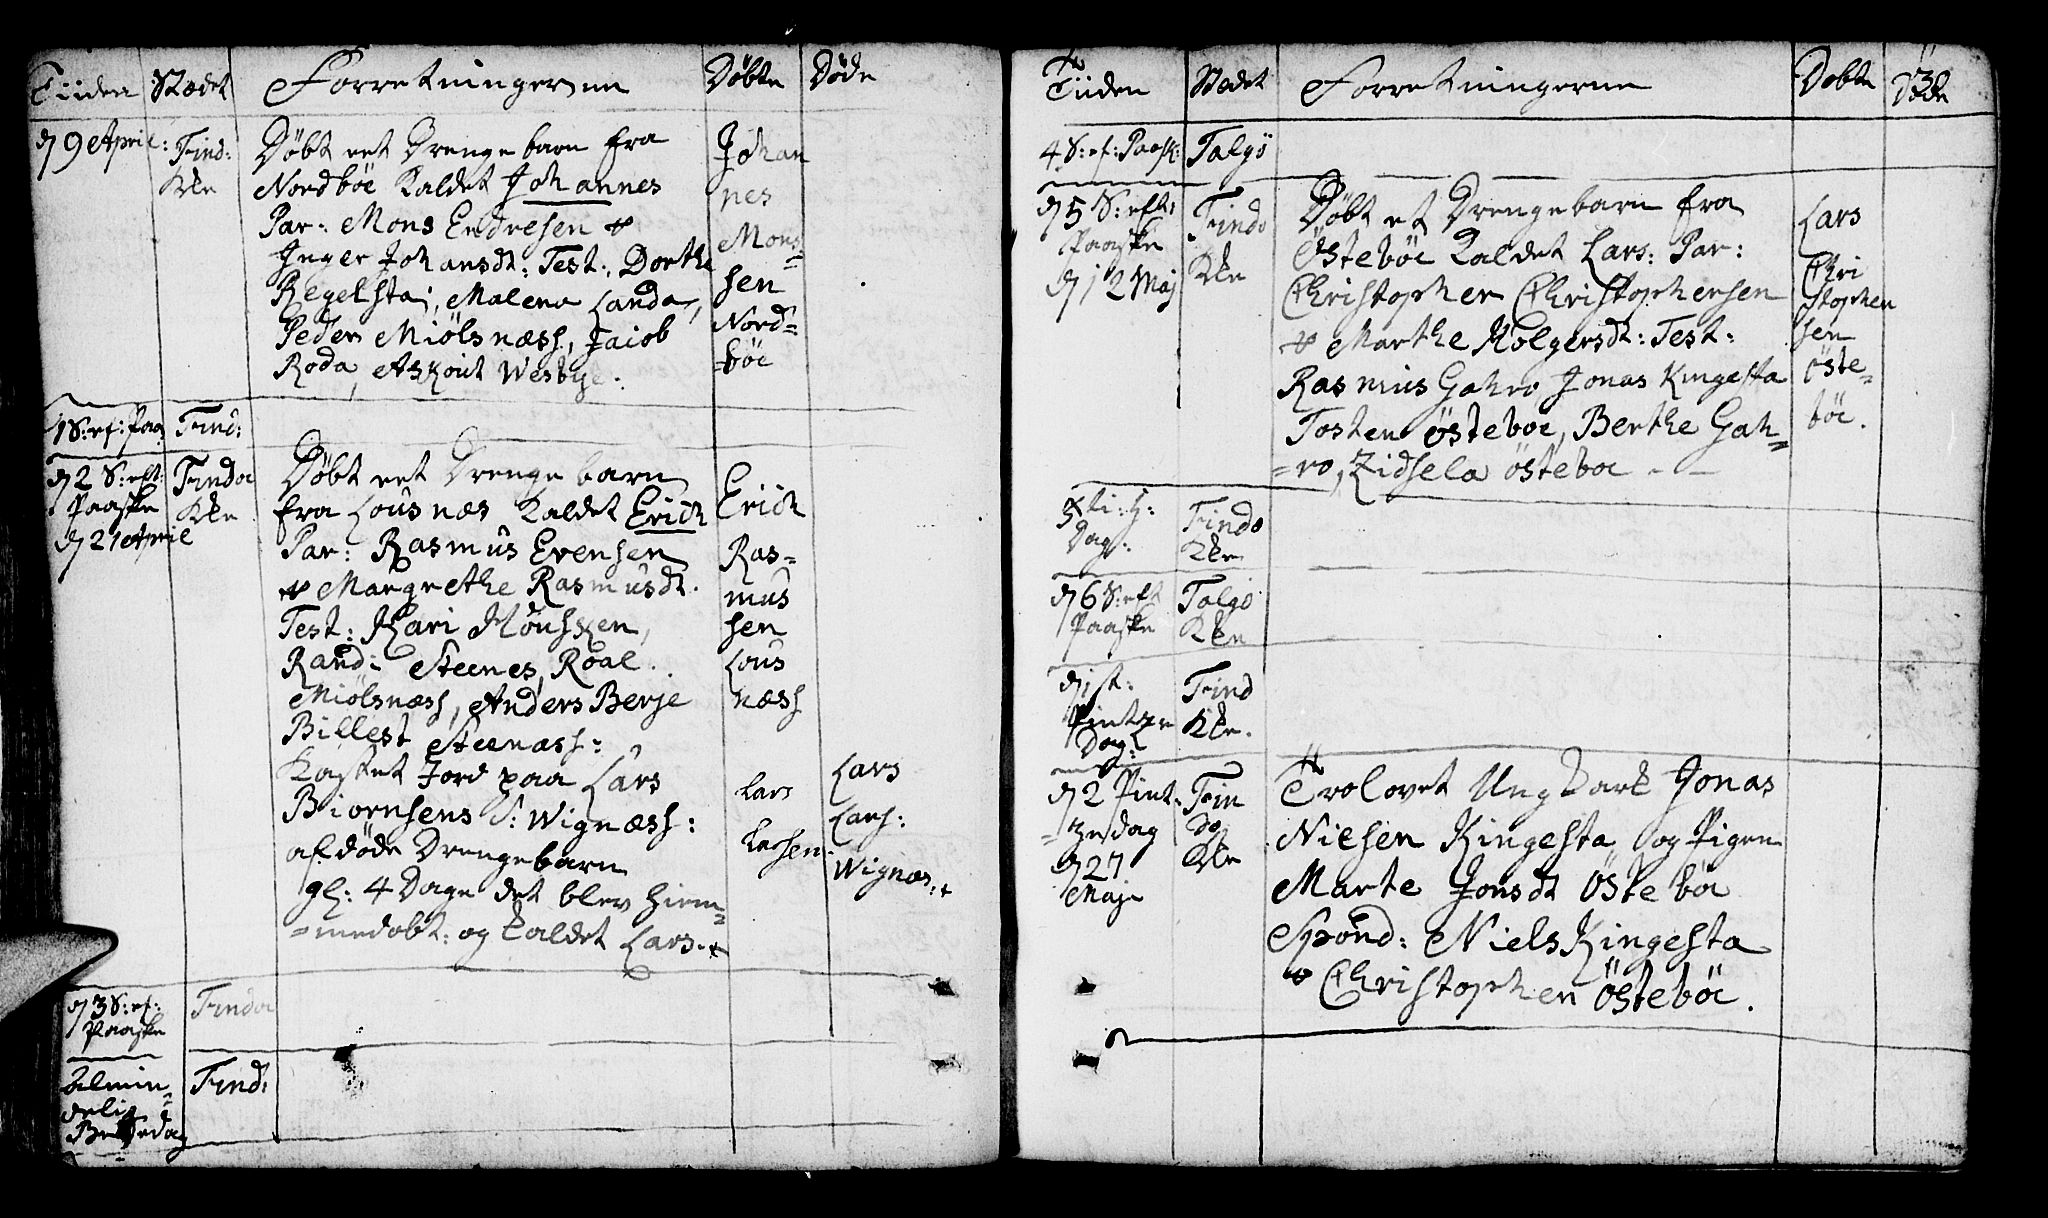 Tiiden Stædet Forretningerne Døbte Døde
d 9 April: Find: Kke
Døbt eet Drenge barn fra
Nordbøe Kaldet Johannes
Par: Mons Endresen &
Inger Johansdt: Test: Dorthe
Regelsta, Malena Landa,
Peder Miölsnæss, Jacob
Roda, Askout Westbye:
Johan
nes
Mons=
sen
Nord=
=bøe
1 S: ef: Paa Find:
d 2 S: eft:
Paaske
d 21 April
Findøe
Kke
Døbt eet Drenge barn
fra Lousnæs Kaldet Erich
Par: Rasmus Evensen
& Margrethe Rasmusdt.
Test: Kari
Rand: Steenes, Roal
Miölsnæss, Anders Berje
Billest Steenæss:
Erich
Ras=
mus
sen
Lous
næss
Kastet Jord paa Lars
Biornsens S: Wignæss:
afdøde Drengebarn
gl: 4 Dage det blev hiem=
=medøbt: og kaldet Lars.
Lars
Larsen
Lars
Lars:
Wignæs
d 3 S: ef:
Paaske
Findøe
Almin=
delig
Bededag
Find:
Tiiden Stædet Forretningerne Døbte Døde
4 S: ef: Paask: Talgö
d 5 S: eft:
Paaske
d 12 Maj
Findø
Kke
Døbt et Drengebarn fra
Östebøe Kaldet Lars: Par:
Christopher Christophersen
& Marthe Holgersdt: Test:
Rasmus Gahro Jonas Kingesta
Tosten Östeboe, Berthe Gah=
=ro, Zidsela östeboe - -
Lars
Chri
stopher
sen
Öste=
bøe.
Xsti: H:
Dag:
Findø
Kke
d 6 S: eft
Paaske
Talgö
Kke
d 1st:
Pintze
Dag:
Find
Kke.
d 2 Pint:
=zedag
d 27
Maje
Fin
dø
Kke
Trolovet Ungkarl Jonas
Nielsen Kingesta og Pigen
Marte Jonsdt Östebøe
Spond: Niels Kingesta
& Christopher Östebøe.